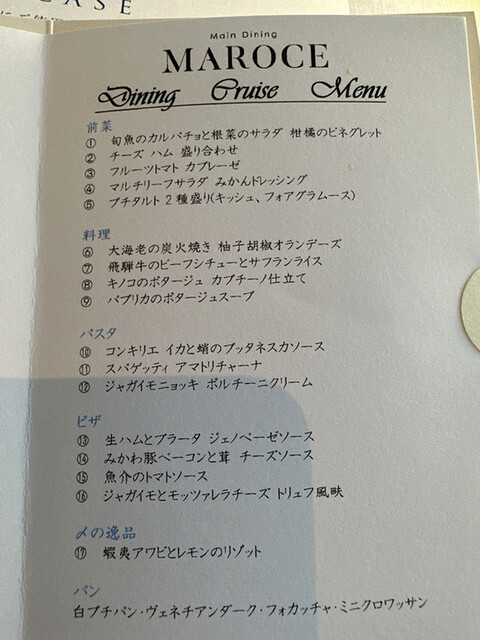 CASE
Main Dining
MAROCE
Dining Cruise Menu
前菜
① 旬魚のカルパチョと根菜のサラダ 柑橘のビネグレット
② チーズ ハム 盛り合わせ
③ フルーツトマト カプレーゼ
④ マルチリーフサラダ みかんドレッシング
⑤ プチタルト 2種盛り(キッシュ、フォアグラムース)
料理
⑥ 大海老の炭火焼き 柚子胡椒オランデーズ
⑦ 飛騨牛のビーフシチューとサフランライス
⑧ キノコのポタージュ カプチーノ仕立て
⑨ パプリカのポタージュスープ
パスタ
⑩ コンキリエ イカと蛸のプッタネスカソース
⑪ スパゲッティ アマトリチャーナ
⑫ ジャガイモニョッキ ポルチーニクリーム
ピザ
⑬ 生ハムとブラータ ジェノベーゼソース
⑭ みかわ豚ベーコンと茸 チーズソース
⑮ 魚介のトマトソース
⑯ ジャガイモとモッツァレラチーズ トリュフ風味
〆の逸品
⑰ 蝦夷アワビとレモンのリゾット
パン
白プチパン・ヴェネチアンダーク・フォカッチャ・ミニクロワッサン